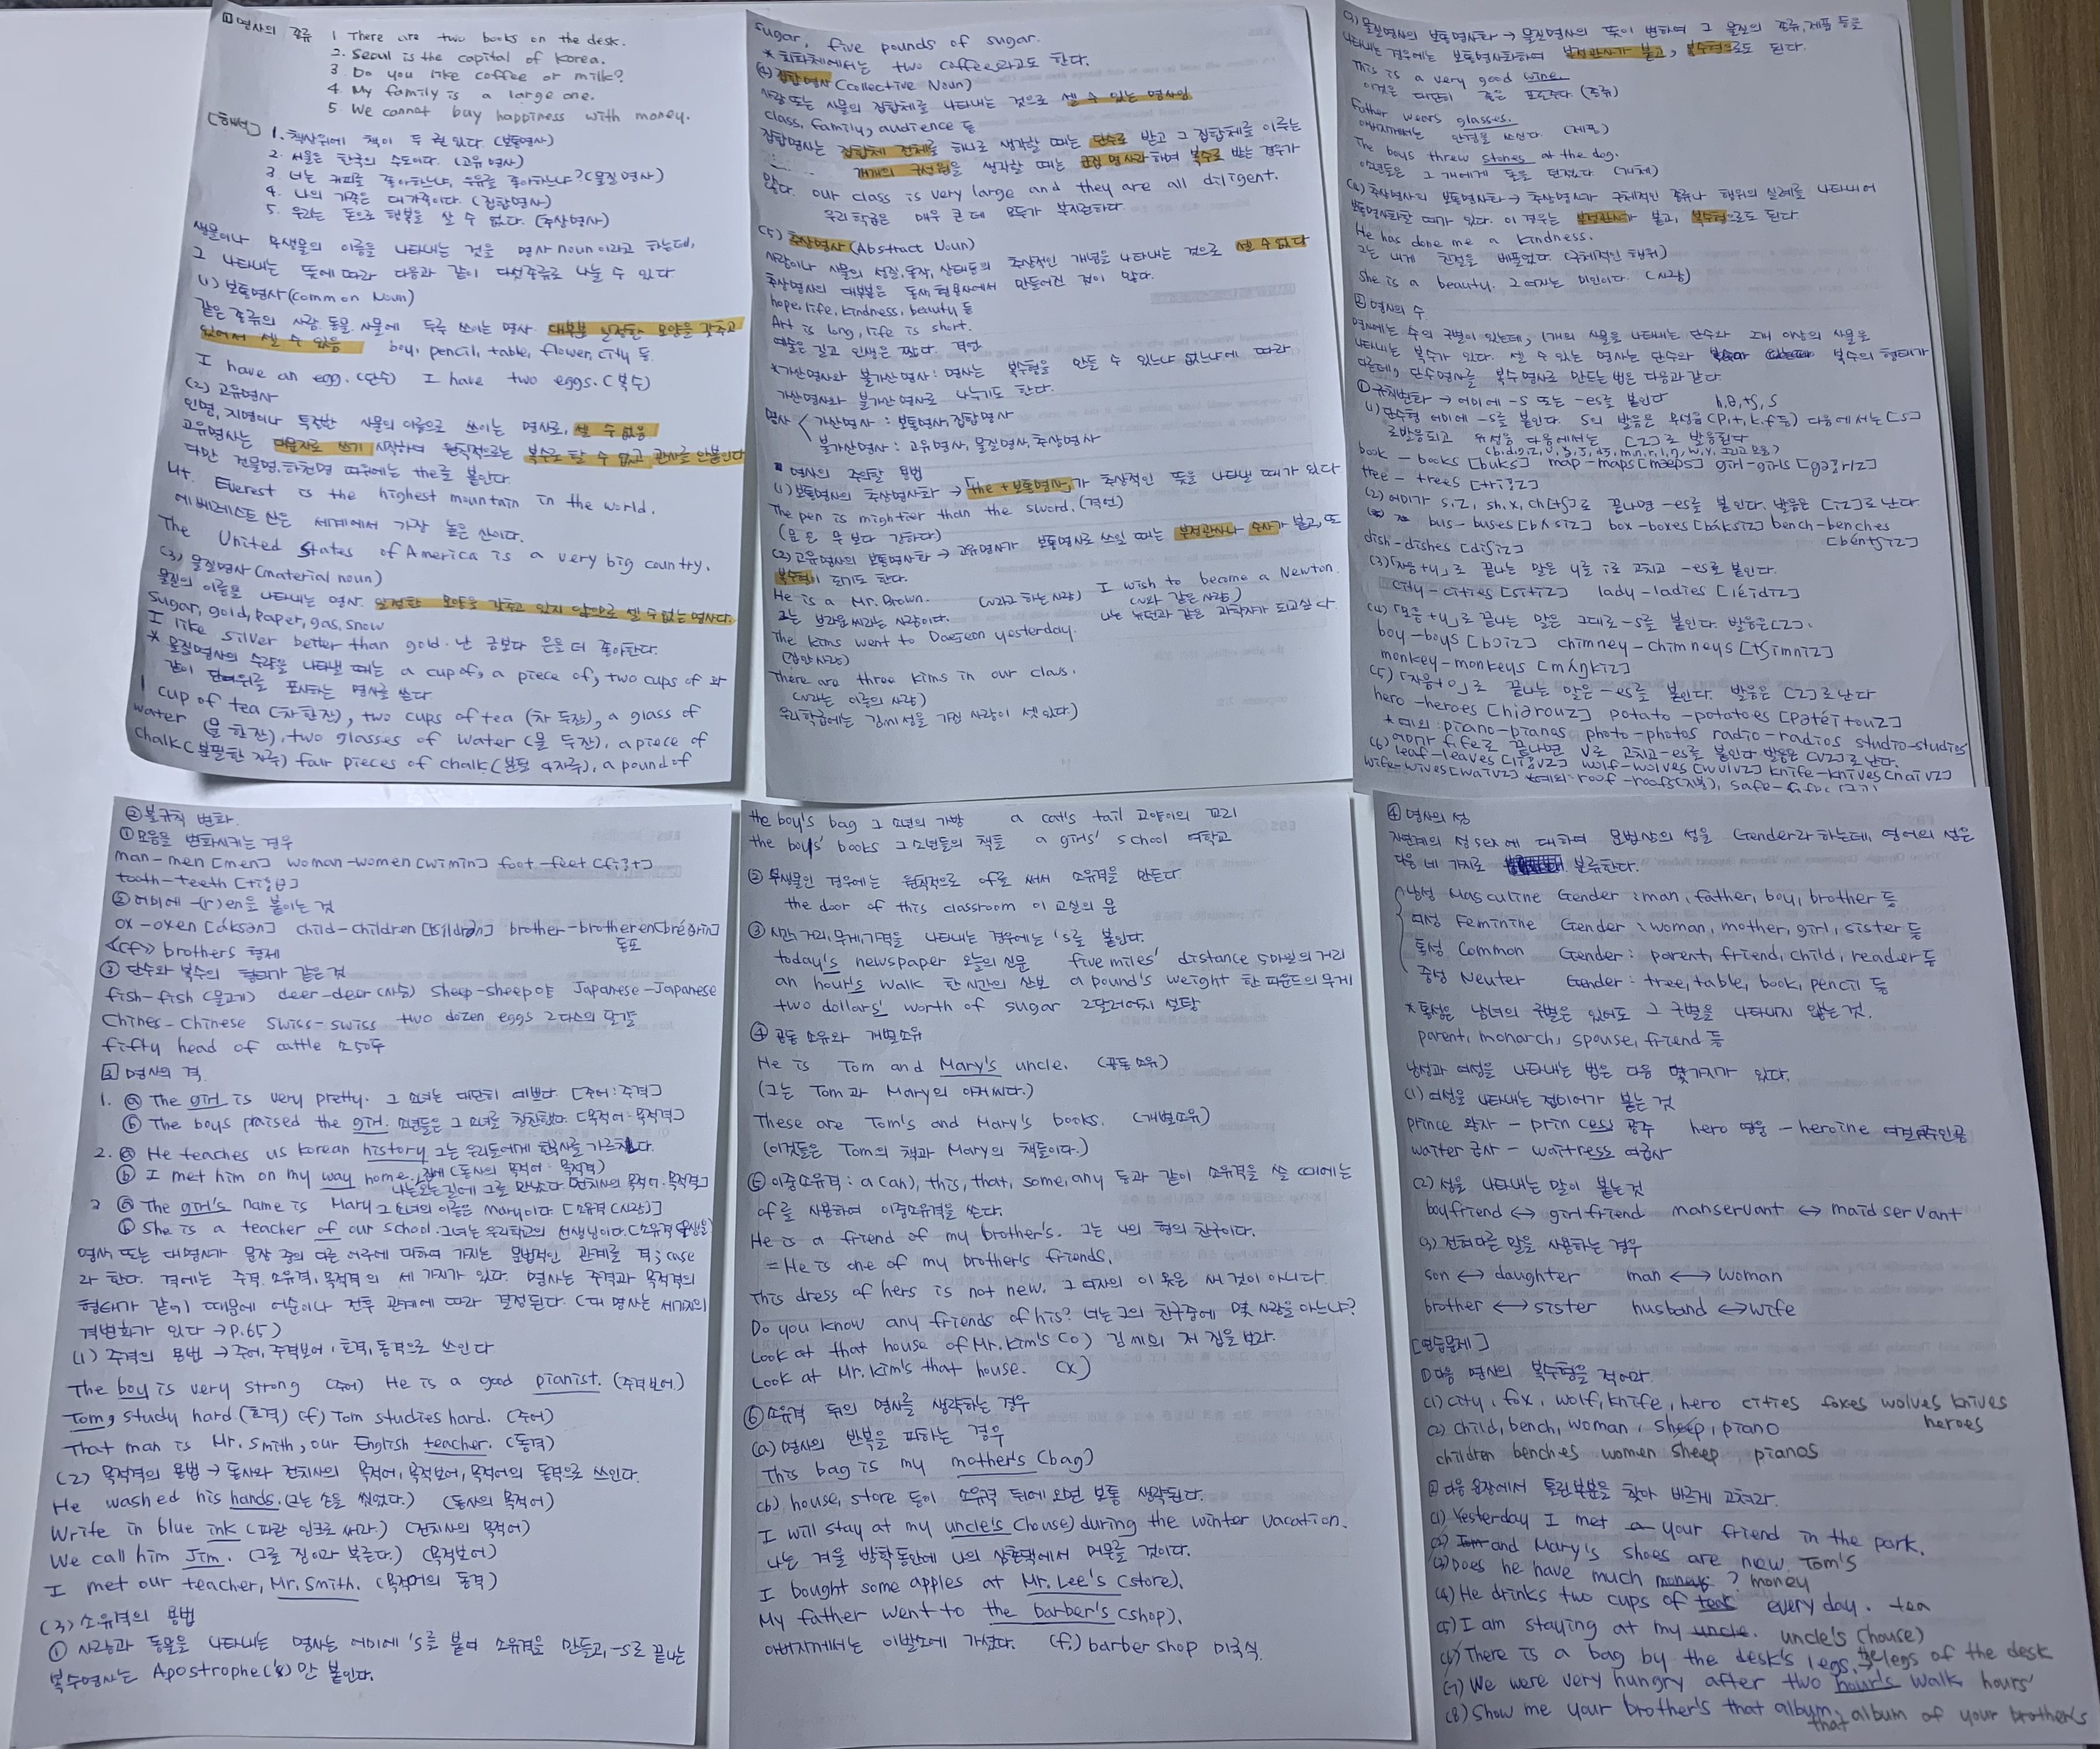 1 명사의 종류 1 There are two books on the desk.
2. Seoul is the capital of Korea.
3. Do you like coffee or milk?
4. My family is a large one.
5. We cannot buy happiness with money.
[해석] 1. 책상위에 책이 두 권 있다 (보통명사)
2. 서울은 한국의 수도이다. (고유명사)
3 너는 커피를 좋아하느냐, 우유를 좋아하느냐? (물질명사)
4. 나의 가족은 대가족이다. (집합명사)
5. 우리는 돈으로 행복을 살 수 없다. (추상명사)
생물이나 무생물의 이름을 나타내는 것을 명사 noun이라고 하는데,
그 나타내는 뜻에 따라 다음과 같이 다섯종류로 나눌 수 있다
(1) 보통명사(common Noun)
같은 종류의 사람. 동물. 사물에 두루 쓰이는 명사. 대부분 일정한 모양을 갖추고
있어서 셀 수 있음 boy, pencil, table, flower, city 등.
I have an egg. (단수) I have two eggs. (복수)
(2) 고유명사
인명, 지명이나 특정한 사물의 이름으로 쓰이는 명사로, 셀 수 없음
고유명사는 대문자로 쓰기 시작하며 원칙적으로는 복수로 할 수 없고 관사를 안붙인다
다만 건물명. 하천명 따위에는 the를 붙인다.
Mt. Everest is the highest mountain in the world.
에베레스트 산은 세계에서 가장 높은 산이다.
The United States of America is a very big country.
(3) 물질명사(material noun)
물질의 이름을 나타내는 명사. 일정한 모양을 갖추고 있지 않으므로 셀 수 없는 명사다.
sugar, gold, paper, gas, snow
I like silver better than gold. 난 금보다 은을 더 좋아한다.
* 물질명사의 수량을 나타낼 때는 a cup of, a piece of, two cups of 와
같이 단위를 표시하는 명사를 쓴다
1 cup of tea (차 한잔), two cups of tea (차 두잔), a glass of
water (물 한잔), two glasses of water (물 두잔), a piece of
chalk (분필한 자루) four pieces of chalk (분필 4자루), a pound of
sugar, five pounds of sugar.
* 회화체에서는 two coffees라고도 한다.
(4) 집합명사(Collective Noun)
사람 또는 사물의 집합체를 나타내는 것으로 셀 수 있는 명사임
class, family, audience 등
집합명사는 집합체 전체를 하나로 생각할 때는 단수로 받고 그 집합체를 이루는
개개의 구성원을 생각할 때는 군집 명사라 하며 복수로 받는 경우가
많다. Our class is very large and they are all diligent.
우리 학급은 매우 큰데 모두가 부지런하다.
(5) 추상명사(Abstract Noun)
사람이나 사물의 성질, 동작, 상태등의 추상적인 개념을 나타내는 것으로 셀 수 없다
추상명사의 대부분은 동사, 형용사에서 만들어진 것이 많다.
hope, life, kindness, beauty 등
Art is long, life is short.
예술은 길고 인생은 짧다. 격언
*가산명사와 불가산명사 : 명사는 복수형을 만들 수 있느냐 없느냐에 따라
가산명사와 불가산 명사로 나누기도 한다.
명사 < 가산명사 : 보통명사, 집합명사
불가산명사 : 고유명사, 물질명사, 추상명사
명사의 주의할 용법
(1) 보통명사의 추상명사화 → 「the + 보통명사」가 추상적인 뜻을 나타낼 때가 있다
The pen is mightier than the sword. (격언)
(문은 무보다 강하다)
(2) 고유명사의 보통명사화 → 고유명사가 보통명사로 쓰일 때는 부정관사나 수사가 붙고, 또
복수형이 되기도 한다.
He is a Mr. Brown. (~라고 하는 사람) I wish to become a Newton.
그는 브라운씨라는 사람이다. (~와 같은 사람) 나는 뉴턴과 같은 과학자가 되고싶다.
The Kims went to Daejeon yesterday.
(집안사람)
There are three Kims in our class.
(~라는 이름의 사람)
우리학급에는 김씨 성을 가진 사람이 셋 있다.)
(3) 물질명사의 보통명사화 → 물질명사의 뜻이 변하여 그 물질의 종류, 제품 등을
나타내는 경우에는 보통명사화하여 부정관사가 붙고, 복수형으로도 된다.
This is a very good wine.
이것은 대단히 좋은 포도주다 (종류)
Father wears glasses.
아버지께서는 안경을 쓰신다. (제품)
The boys threw stones at the dog.
소년들은 그 개에게 돌을 던졌다 (개체)
(4) 추상명사의 보통명사화 → 추상명사가 구체적인 종류나 행위의 실례를 나타내어
보통명사화할 때가 있다. 이 경우는 부정관사가 붙고, 복수형으로도 된다
He has done me a kindness.
그는 내게 친절을 베풀었다. (구체적인 행위)
She is a beauty. 그 여자는 미인이다. (사람)
2 명사의 수
명사에는 수의 구별이 있는데, 1개의 사물을 나타내는 단수와 2개 이상의 사물을
나타내는 복수가 있다. 셀 수 있는 명사는 단수와 복수의 형태가
다른데, 단수명사를 복수명사로 만드는 법은 다음과 같다.
① 규칙변화 → 어미에 -s 또는 -es를 붙인다 h, θ, tʃ, s
(1) 단수형 어미에 -s를 붙인다. s의 발음은 무성음 (p, t, k, f 등) 다음에서는 [s]
로발음되고 유성음 다음에서는 [z]로 발음된다
book - books [buks] map - maps [mæps] girl - girls [gə:rlz]
tree - trees [tri:z]
(2) 어미가 s, z, sh, x, ch[tʃ]로 끝나면 -es를 붙인다. 발음은 [iz]로 난다.
bus - buses [bʌsiz] box - boxes [báksiz] bench - benches
[béntʃiz]
dish - dishes [diʃiz]
(3) 「자음+y」로 끝나는 말은 y를 i로 고치고 -es로 붙인다.
city - cities [sitiz] lady - ladies [léidiz]
(4) 「모음+y」로 끝나는 말은 그대로 -s를 붙인다. 발음은 [z].
boy - boys [bɔiz] chimney - chimneys [tʃimniz]
monkey - monkeys [mʌŋkiz]
(5) 「자음+o」로 끝나는 말은 -es를 붙인다. 발음은 [z]로 난다
hero - heroes [hiərouz] potato - potatoes [pətéitouz]
*예외 : piano-pianos photo-photos radio-radios studio-studios
(6) 어미가 f, fe로 끝나면 v로 고치고 -es를 붙인다 발음은 [vz]로 난다.
leaf-leaves [li:vz] wolf-wolves [wulvz] knife-knives [naivz]
wife-wives [waivz] *예외 : roof-roofs(지붕),
② 불규칙 변화
① 모음을 변화시키는 경우
man-men [men] woman-women [wimin] foot-feet [fi:t]
tooth-teeth [ti:θ]
② 어미에 -(r)en을 붙이는 것
ox-oxen [áksən] child-children [tʃildrən] brother-brotheren [bréðrin]
동포
<cf> brothers 형제
③ 단수와 복수의 형태가 같은 것
fish-fish (물고기) deer-deer (사슴) sheep-sheep 양 Japanese-Japanese
Chines-Chinese Swiss-swiss two dozen eggs 2다스의 달걀
fifty head of cattle 소 50두
3 명사의 격
1. ⓐ The girl is very pretty. 그 소녀는 대단히 예쁘다. [주어 : 주격]
ⓑ The boys praised the girl. 소년들은 그 소녀를 칭찬했다. [목적어 : 목적격]
2. ⓐ He teaches us Korean history 그는 우리들에게 한국사를 가르친다.
(동사의 목적어 : 목적격)
ⓑ I met him on my way home. 집에 오는 길에 그를 만났다. [전치사의 목적어. 목적격]
3 ⓐ The girl's name is Mary 그 소녀의 이름은 Mary이다 [소유격 (사람)]
ⓑ She is a teacher of our school. 그녀는 우리학교의 선생님이다. [소유격 (무생물)]
명사 또는 대명사가 문장 중의 다른 어구에 대하여 가지는 문법적인 관계를 격; case
라 한다. 격에는 주격, 소유격, 목적격의 세 가지가 있다. 명사는 주격과 목적격의
형태가 같기 때문에 어순이나 전후 관계에 따라 결정된다. (대명사는 세가지의
격변화가 있다 → P.65)
(1) 주격의 용법 → 주어, 주격보어, 호격, 동격으로 쓰인다
The boy is very strong (주어) He is a good pianist. (주격보어.)
Tom, study hard. (호격) cf) Tom studies hard. (주어)
That man is Mr. Smith, our English teacher. (동격)
(2) 목적격의 용법 → 동사와 전치사의 목적어, 목적보어, 목적어의 동격으로 쓰인다.
He washed his hands. (그는 손을 씻었다.) (동사의 목적어)
Write in blue ink (파란 잉크로 써라.) (전치사의 목적어)
We call him Jim. (그를 짐이라 부른다.) (목적보어)
I met our teacher, Mr. Smith. (목적어의 동격)
(3) 소유격의 용법
① 사람과 동물을 나타내는 명사는 어미에 's를 붙여 소유격을 만들고, -s로 끝나는
복수명사는 Apostrophe(')만 붙인다.
the boy's bag 그 소년의 가방 a cat's tail 고양이의 꼬리
the boys' books 그 소년들의 책들 a girls' school 여학교
② 무생물인 경우에는 원칙적으로 of를 써서 소유격을 만든다.
the door of this classroom 이 교실의 문
③ 시간, 거리, 무게, 가격을 나타내는 경우에는 's를 붙인다.
today's newspaper 오늘의 신문 five miles' distance 5마일의 거리
an hour's walk 한 시간의 산보 a pound's weight 한 파운드의 무게
two dollars' worth of sugar 2달러어치 설탕
④ 공동 소유와 개별소유
He is Tom and Mary's uncle. (공동 소유)
(그는 Tom과 Mary의 아저씨다.)
These are Tom's and Mary's books. (개별소유)
(이것들은 Tom의 책과 Mary의 책들이다.)
⑤ 이중소유격 : a(an), this, that, some, any 등과 같이 소유격을 쓸 때에는
of를 사용하여 이중소유격을 쓴다.
He is a friend of my brother's. 그는 나의 형의 친구이다.
= He is one of my brother's friends.
This dress of hers is not new. 그 여자의 이 옷은 새 것이 아니다.
Do you know any friends of his? 너는 그의 친구중에 몇 사람을 아느냐?
Look at that house of Mr. Kim's (o) 김씨의 저 집을 보라.
Look at Mr. Kim's that house. (x)
⑥ 소유격 뒤의 명사를 생략하는 경우
(a) 명사의 반복을 피하는 경우
This bag is my mother's (bag)
(b) house, store 등이 소유격 뒤에 오면 보통 생략된다.
I will stay at my uncle's (house) during the winter vacation.
나는 겨울 방학동안에 나의 삼촌댁에서 머무를 것이다.
I bought some apples at Mr. Lee's (store).
My father went to the barber's (shop).
아버지께서는 이발소에 가셨다. (f.) barber shop 미국식.
④ 명사의 성
자연계의 성 sex에 대하여 문법상의 성을 Gender라 하는데, 영어의 성은
다음 네 가지로 분류한다.
남성 Masculine Gender : man, father, boy, brother 등
여성 Feminine Gender : woman, mother, girl, sister 등
통성 Common Gender : parent, friend, child, reader 등
중성 Neuter Gender : tree, table, book, pencil 등
*통성은 남녀의 구별은 있어도 그 구별을 나타내지 않는 것.
parent, monarch, spouse, friend 등
남성과 여성을 나타내는 법은 다음 몇가지가 있다.
(1) 여성을 나타내는 접미어가 붙는 것
prince 왕자 - princess 공주 hero 영웅 - heroine 여걸, 여주인공
waiter 급사 - waitress 여급사
(2) 성을 나타내는 말이 붙는 것
boyfriend ↔ girlfriend manservant ↔ maidservant
(3) 전혀 다른 말을 사용하는 경우
son ↔ daughter man ↔ woman
brother ↔ sister husband ↔ wife
[연습문제]
1) 다음 명사의 복수형을 적어라.
(1) city, fox, wolf, knife, hero cities foxes wolves knives
heroes
(2) child, bench, woman, sheep, piano
children benches women sheep pianos
2 다음 문장에서 틀린부분을 찾아 바르게 고쳐라.
(1) Yesterday I met a your friend in the park.
(2) Tom and Mary's shoes are new. Tom's
(3) Does he have much moneys? money
(4) He drinks two cups of teas every day. tea
(5) I am staying at my uncle. uncle's (house)
(6) There is a bag by the desk's legs. → the legs of the desk
(7) We were very hungry after two hour's walk hours'
(8) Show me your brother's that album. that album of your brother's